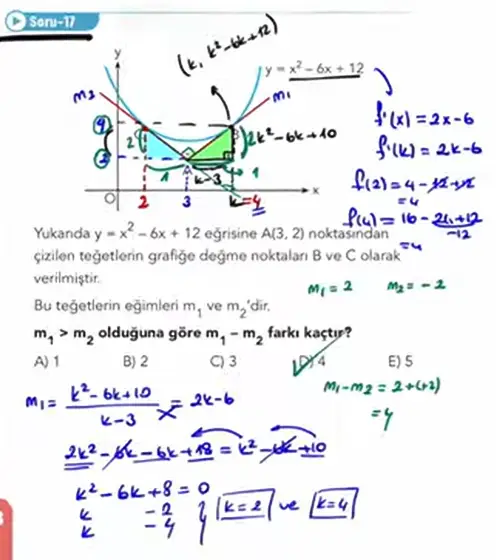 Soru-17
(k, k² - 6k + 12)
y
y = x² - 6x + 12
m₂
m₁
f'(x) = 2x - 6
f'(k) = 2k - 6
4
2
2k² - 6k + 10
2
1
k-3
1
A
f(2) = 4 - 12 + 12
= 4
O
2
3
k=4
x
f(4) = 16 - 24 + 12
-12
= 4
Yukarıda y = x² – 6x + 12 eğrisine A(3, 2) noktasından
çizilen teğetlerin grafiğe değme noktaları B ve C olarak
verilmiştir.
m₁ = 2 m₂ = -2
Bu teğetlerin eğimleri m₁ ve m₂'dir.
m₁ > m₂ olduğuna göre m₁ – m₂ farkı kaçtır?
A) 1 B) 2 C) 3 D) 4 E) 5
m₁ = k² - 6k + 10 / k - 3 = 2k - 6
m₁ - m₂ = 2 + (+2)
= 4
2k² - 6k - 6k + 18 = k² - 6k + 10
k² - 6k + 8 = 0
k - 2
k - 4
k = 2 ve k = 4